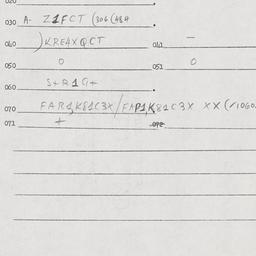 020
030 A- Z1FCT (306(A8A
040 )KREAXQCT 041 —
050 0 051 0
060 S+R1G+
070 FAR1K81C3X/FAP1K81C3X XX(/1060.
071 + 072